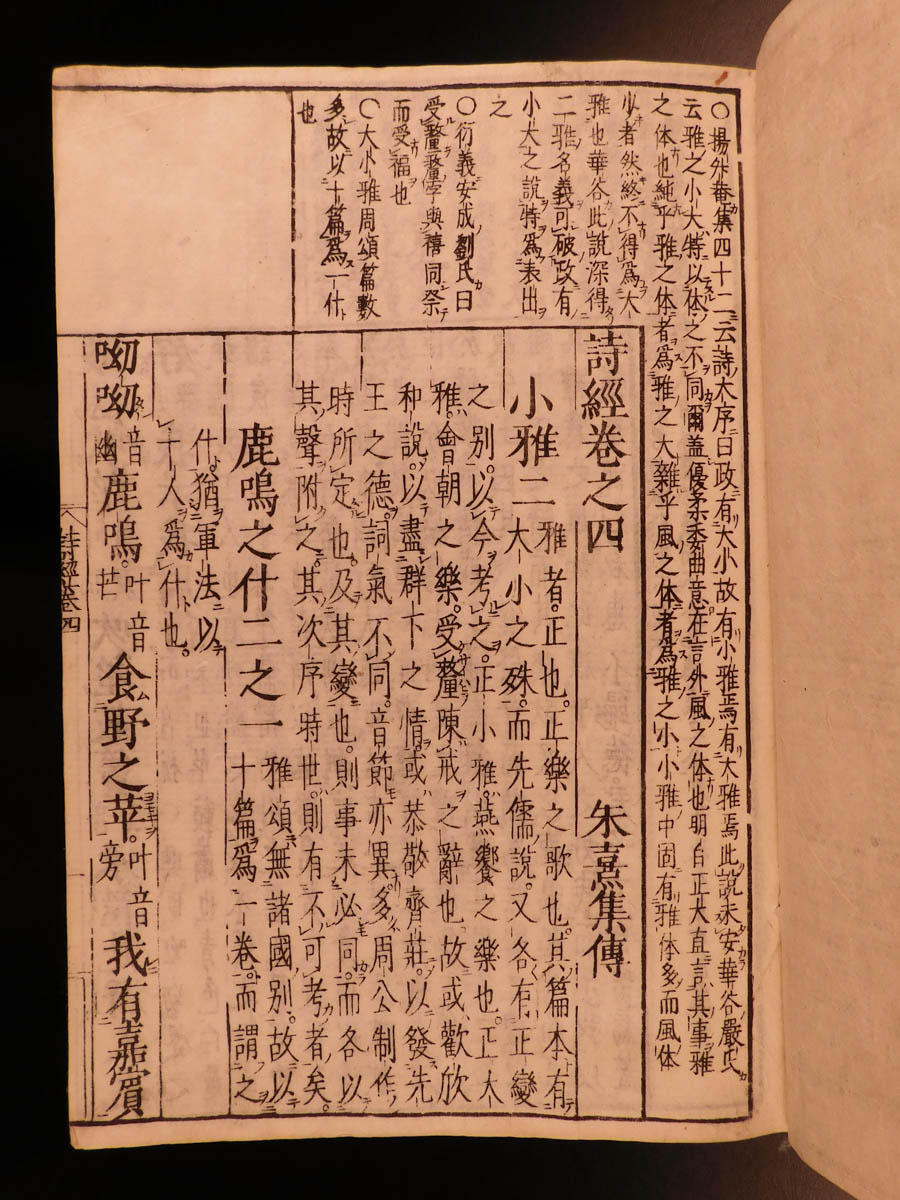 〇揚升菴集四十二云詩大序曰政有大小故有小雅焉有大雅焉此說未安華谷嚴氏
云雅之小大特以体之不同爾盖優柔委曲意在言外風之体也明白正大直言其事雅
之体也純乎雅之体者爲雅之大雜乎風之体者爲雅之小小雅中固有雅体多而風体
少者然終不得爲大
雅也華谷此說深得
二雅名義可破政有
小大之說特爲表出
之
〇衍義安成劉氏曰
受釐釐字與禧同祭
而受福也
〇大小雅周頌篇數
多故以十篇爲一什
也
詩經卷之四 朱熹集傳
小雅二 雅者正也。正樂之歌也。其篇本有
大小之殊。而先儒說。又各有正變
之別。以今考之。正小雅。燕饗之樂也。正大
雅。會朝之樂。受釐陳戒之辭也。故或歡欣
和說。以盡群下之情。或恭敬齊莊。以發先
王之德。詞氣不同。音節亦異。多周公制作
時所定也。及其變也。則事未必同。而各以
其聲附之。其次序時世。則有不可考者矣。
鹿鳴之什二之一 雅頌無諸國別。故以
十篇爲一卷而謂之
什。猶軍法以
十人爲什也。
呦呦音幽鹿鳴。叶音芒食野之苹。叶音旁我有嘉賓
詩經卷四